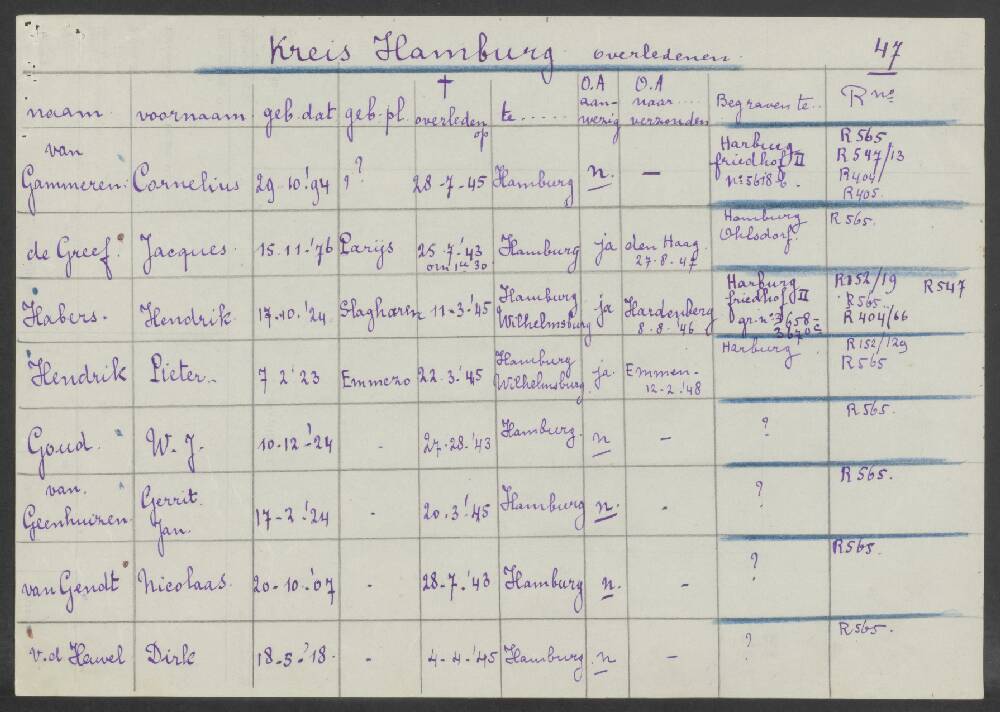 Kreis Hamburg overledenen. 47
naam voornaam geb. dat geb. pl. † overleden op te ...... O.A aanwezig O.A naar .... verzonden Begraven te .. R no
van Gammeren. Cornelius 29-10-'94 ? 28-7-45 Hamburg n. — Harburg friedhof II R 565 R 547/13 R 404/ R 405.
de Greef. Jacques. 15-11-'76 Parijs 25-7-'43 Hamburg ja den Haag. 27-8-47 Hamburg Ohlsdorf. R 565.
Habers. Hendrik. 17-10-'24 Slagharen 11-3-'45 Hamburg Wilhelmsburg ja Hardenberg 8-8-'46 Harburg friedhof II R 152/19 R 547 R 565 R 404/66
Hendrik Pieter.. 7 2 '23 22-3-'45 Hamburg Wilhelmsburg ja. Emmen- 12-2-'48 Harburg R 152/129 R 565
Goud. W. J. 10-12-'24 - Hamburg. n - ? R 565.
van. Geenhuizen. Gerrit. Jan. 17-2-'24 - 20-3-'45 Hamburg n. - ? R 565.
van Gendt Nicolaas. 20-10-'07 - 28-7-'43 Hamburg n. - ? R 565.
v.d Heuvel Dirk - 4-4-'45 Hamburg. n — ? R 565.